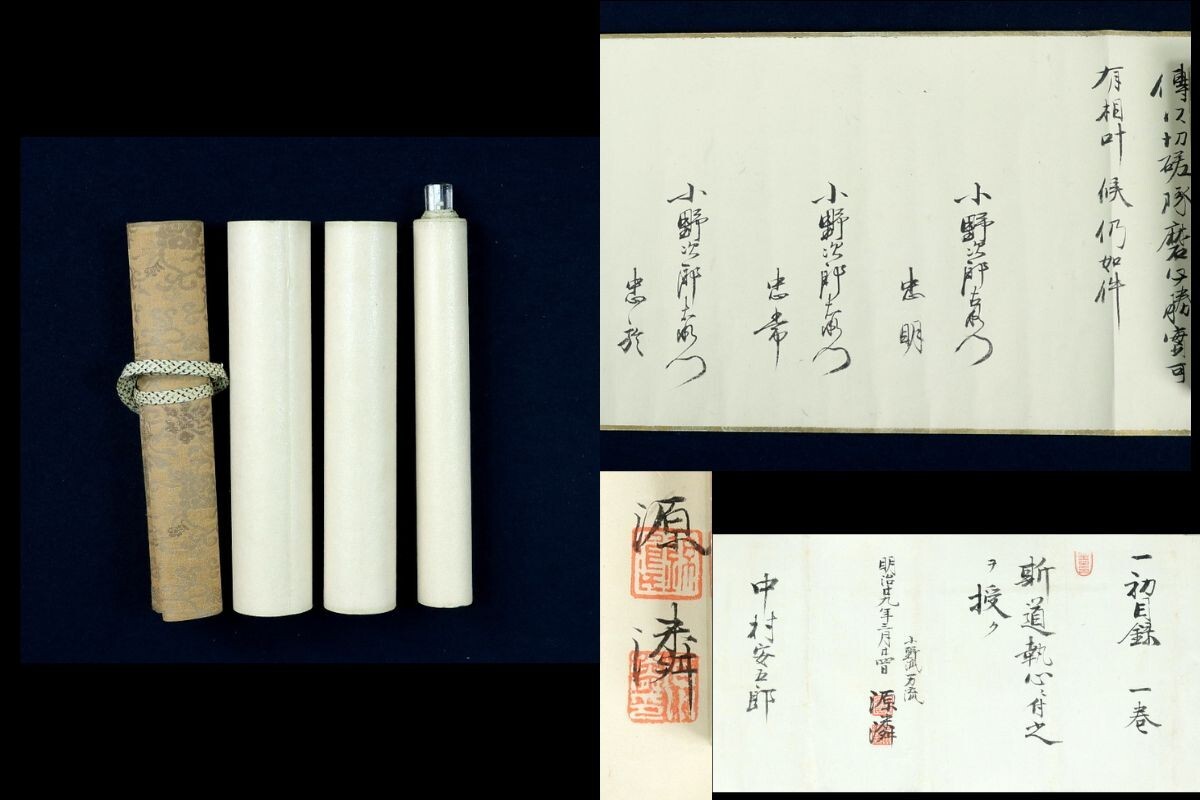 傳以切磋琢磨必勝實可
有相叶候仍如件
小野次郎右衛門
忠明
小野次郎右衛門
忠常
小野次郎右衛門
忠於
源
潾
一初目録 一巻
斯道執心ニ付之
ヲ授ク
小野派一刀流
源潾
明治廿九年三月廿四日
中村安五郎